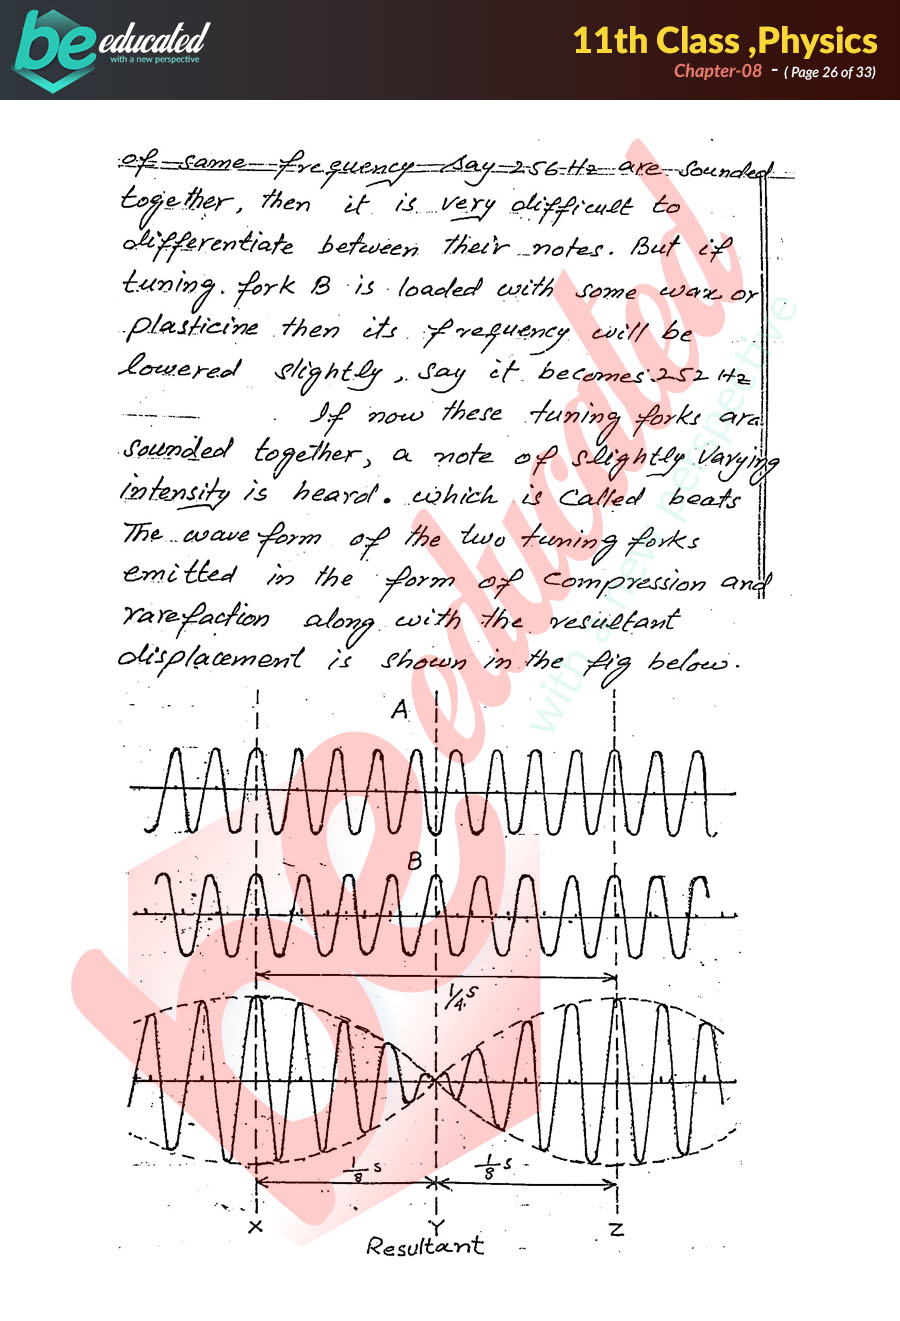 be educated
with a new perspective
11th Class ,Physics
Chapter-08 - ( Page 26 of 33)
of same frequency say 256 Hz are sounded
together, then it is very difficult to
differentiate between their notes. But if
tuning fork B is loaded with some wax or
plasticine then its frequency will be
lowered slightly, say it becomes 252 Hz
If now these tuning forks are
sounded together, a note of slightly varying
intensity is heard. which is called beats
The wave form of the two tuning forks
emitted in the form of compression and
rarefaction along with the resultant
displacement is shown in the fig below.
A
B
1/4 s
1/8 s 1/8 s
X Y Z
Resultant
be educated
with a new perspective